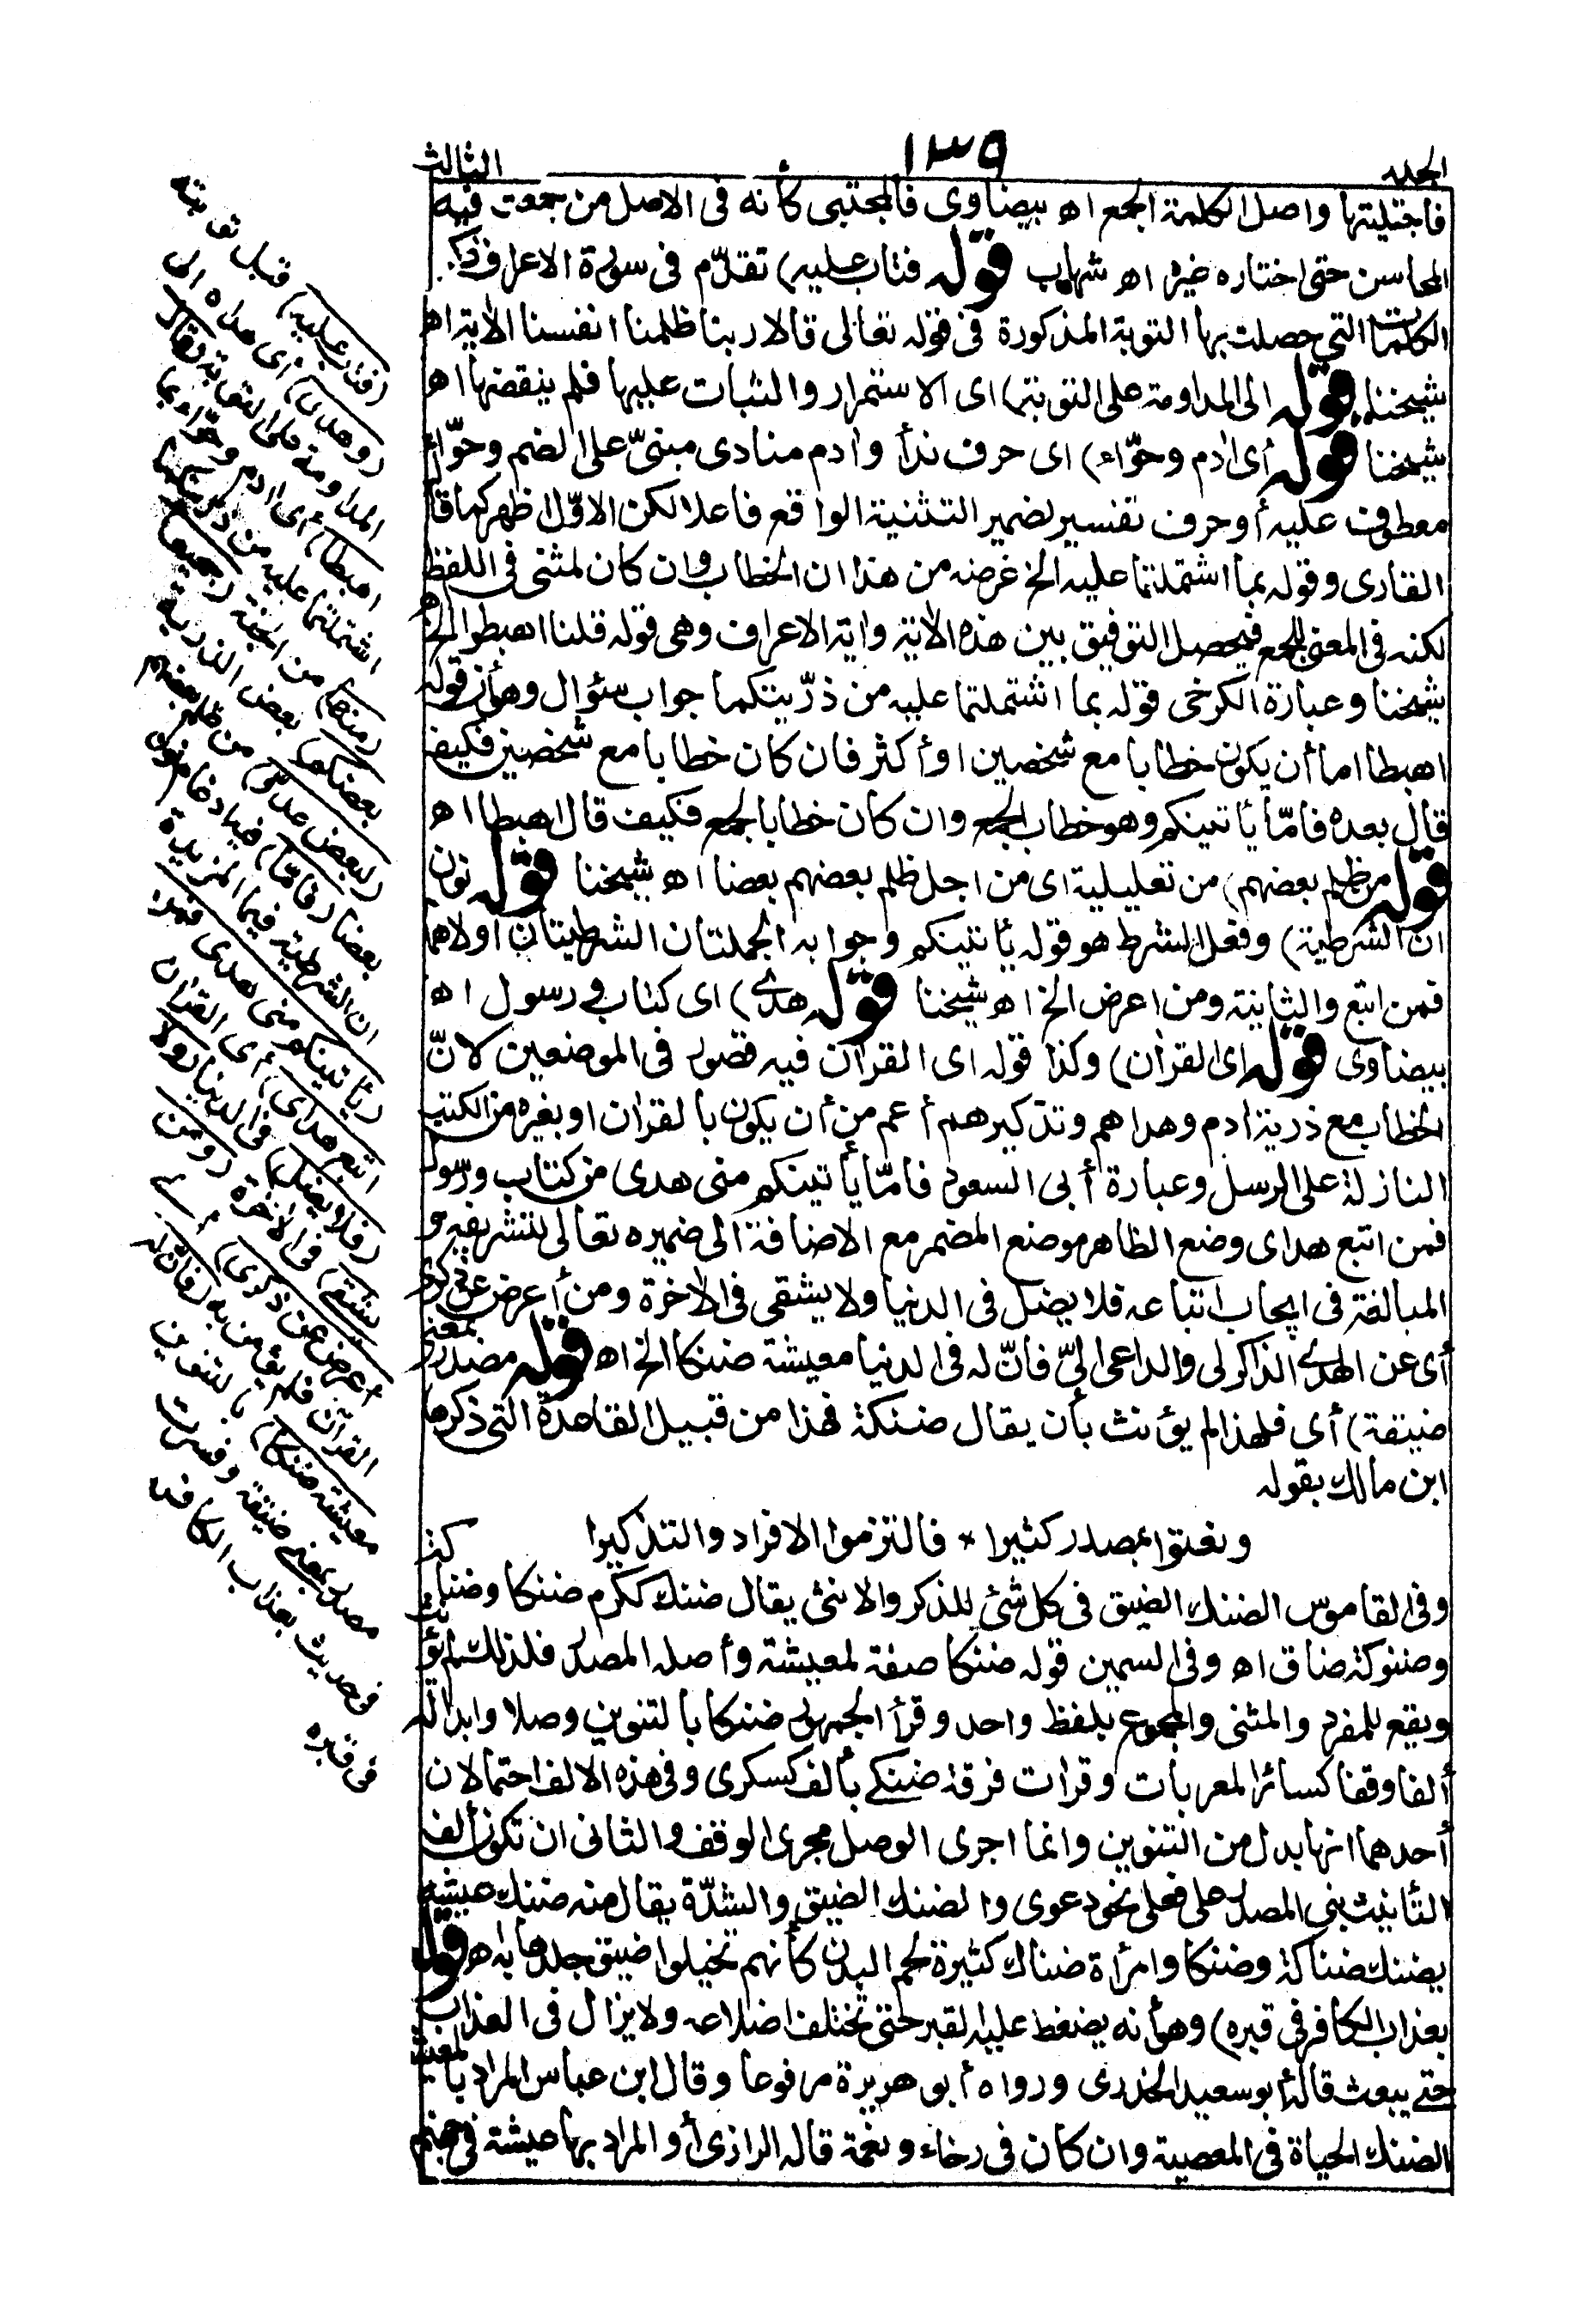 الجلد
١٣٩
الثالث
فاجتليتها واصل الكلمة الجمع اه بيضاوى فالمجتبى كأنه فى الاصل من جمعت فيه
المحاسن حتى اختاره غيره اه شهاب قوله فتاب عليه) تقدّم فى سورة الاعراف ذكر
الكلمات التى حصلت بها التوبة المذكورة فى قوله تعالى قالا ربنا ظلمنا انفسنا الآية اه
شيخنا قوله الى المداومة على التوبة) اى الاستمرار والثبات عليها فلم ينقضها اه
شيخنا قوله أى ادم وحوّاء) اى حرف ندأ وادم منادى مبنىّ على الضم وحوّاء
معطوف عليه أو حرف تفسير لضمير التثنية الواقع فاعلا لكن الاوّل اظهر كما قا
القارى وقوله بما اشتملتما عليه الخ غرضه من هذا ان الخطاب وان كان لمثنى فى اللفظ
لكنه فى المعنى للجمع فيحصل التوفيق بين هذه الآية واية الاعراف وهى قوله قلنا اهبطوا الخ اه
شيخنا وعبارة الكرخى قوله بما اشتملتما عليه من ذرّيتكما جواب سؤال وهو أن قوله
اهبطا اما أن يكون خطابا مع شخصين او أكثر فان كان خطابا مع شخصين فكيف
قال بعده فامّا يأتينكم وهو خطاب الجمع وان كان خطابا للجمع فكيف قال اهبطا اه
قوله من ظلم بعضهم) من تعليلية اى من اجل ظلم بعضهم بعضا اه شيخنا قوله نون
ان الشرطية) وفعل الشرط هو قوله يأتينكم وجوابه الجملتان الشرطيتان اولاهما
فمن اتبع والثانية ومن اعرض الخ اه شيخنا قوله هدى) اى كتاب ورسول اه
بيضاوى قوله اى القرأن) وكذا قوله اى القرآن فيه قصور فى الموضعين لانّ
الخطاب مع ذرية ادم وهداهم وتذكيرهم أعم من أن يكون بالقران او بغيره من الكتب
النازلة على الرسل وعبارة أبى السعود فامّا يأتينكم منى هدى من كتاب ورسول
فمن اتبع هداى وضع الظاهر موضع المضمر مع الاضافة الى ضميره تعالى لتشريفه و
المبالغة فى ايجاب اتباعه فلا يضل فى الدنيا ولا يشقى فى الآخرة ومن أعرض عن ذكرى
أى عن الهدى الذاكر لى والداعى الىّ فانّ له فى الدنيا معيشة ضنكا الخ اه قوله مصدر بمعنى
ضيقة) أى فلهذا لم يؤنث بأن يقال ضنكة فهذا من قبيل القاعدة التى ذكرها
ابن مالك بقوله
ونعتوا بمصدر كثيرا * فالتزموا الافراد والتذكيرا
وفى القاموس الضنك الضيق فى كل شئ للذكر والانثى يقال ضنك ككرم ضنكا وضناكة
وضنوكة ضاق اه وفى السمين قوله ضنكا صفة لمعيشة وأصله المصدر فلذلك لم يؤنث
ويقع للمفرد والمثنى والمجموع بلفظ واحد وقرأ الجمهور ضنكا بالتنوين وصلا وابداله
ألفا وقفا كسائر المعربات وقرات فرقة ضنكى بألف كسكرى وفى هذه الالف احتمالان
أحدهما انها بدل من التنوين وانما اجرى الوصل مجرى الوقف والثانى ان تكون ألف
التأنيث بنى المصدر على فعلى نحو دعوى والضنك الضيق والشدّة يقال منه ضنك عيشه
يضنك ضناكة وضنكا وامرأة ضناك كثيرة لحم البدن كأنهم تخيلوا ضيق جلدها به اه قوله
بعذاب الكافر فى قبره) وهو أنه يضغط عليه القبر حتى تختلف اضلاعه ولا يزال فى العذاب
حتى يبعث قاله أبو سعيد الخدرى ورواه أبو هريرة مرفوعا وقال ابن عباس المراد بالمعيشة
الضنك الحياة فى المعصية وان كان فى رخاء ونعمة قاله الرازى أو المراد بها عيشة فى جهنم
قبل توبته
(فتاب عليه)
(وهدى) أى هداه الى
المداومة على التوبة (قال
اهبطا) أى ادم وحوّاء بما
اشتملتما عليه من ذريتكما
(منها) من الجنة (جميعا
بعضكم) بعض الذرية
(لبعض عدوّ) من ظلم بعضهم
بعضا (فامّا) فيه ادغام نون
ان الشرطية فيما المزيدة
(يأتينكم منى هدى فمن
اتبع هداى) أى القرآن
(فلا يضل) فى الدنيا (ولا
يشقى) فى الآخرة (ومن
أعرض عن ذكرى) أى
القرآن فلم يؤمن به (فانّ له
معيشة ضنكا) بالتنوين
مصدر بمعنى ضيقة وفسرت
فى حديث بعذاب الكافر
فى قبره